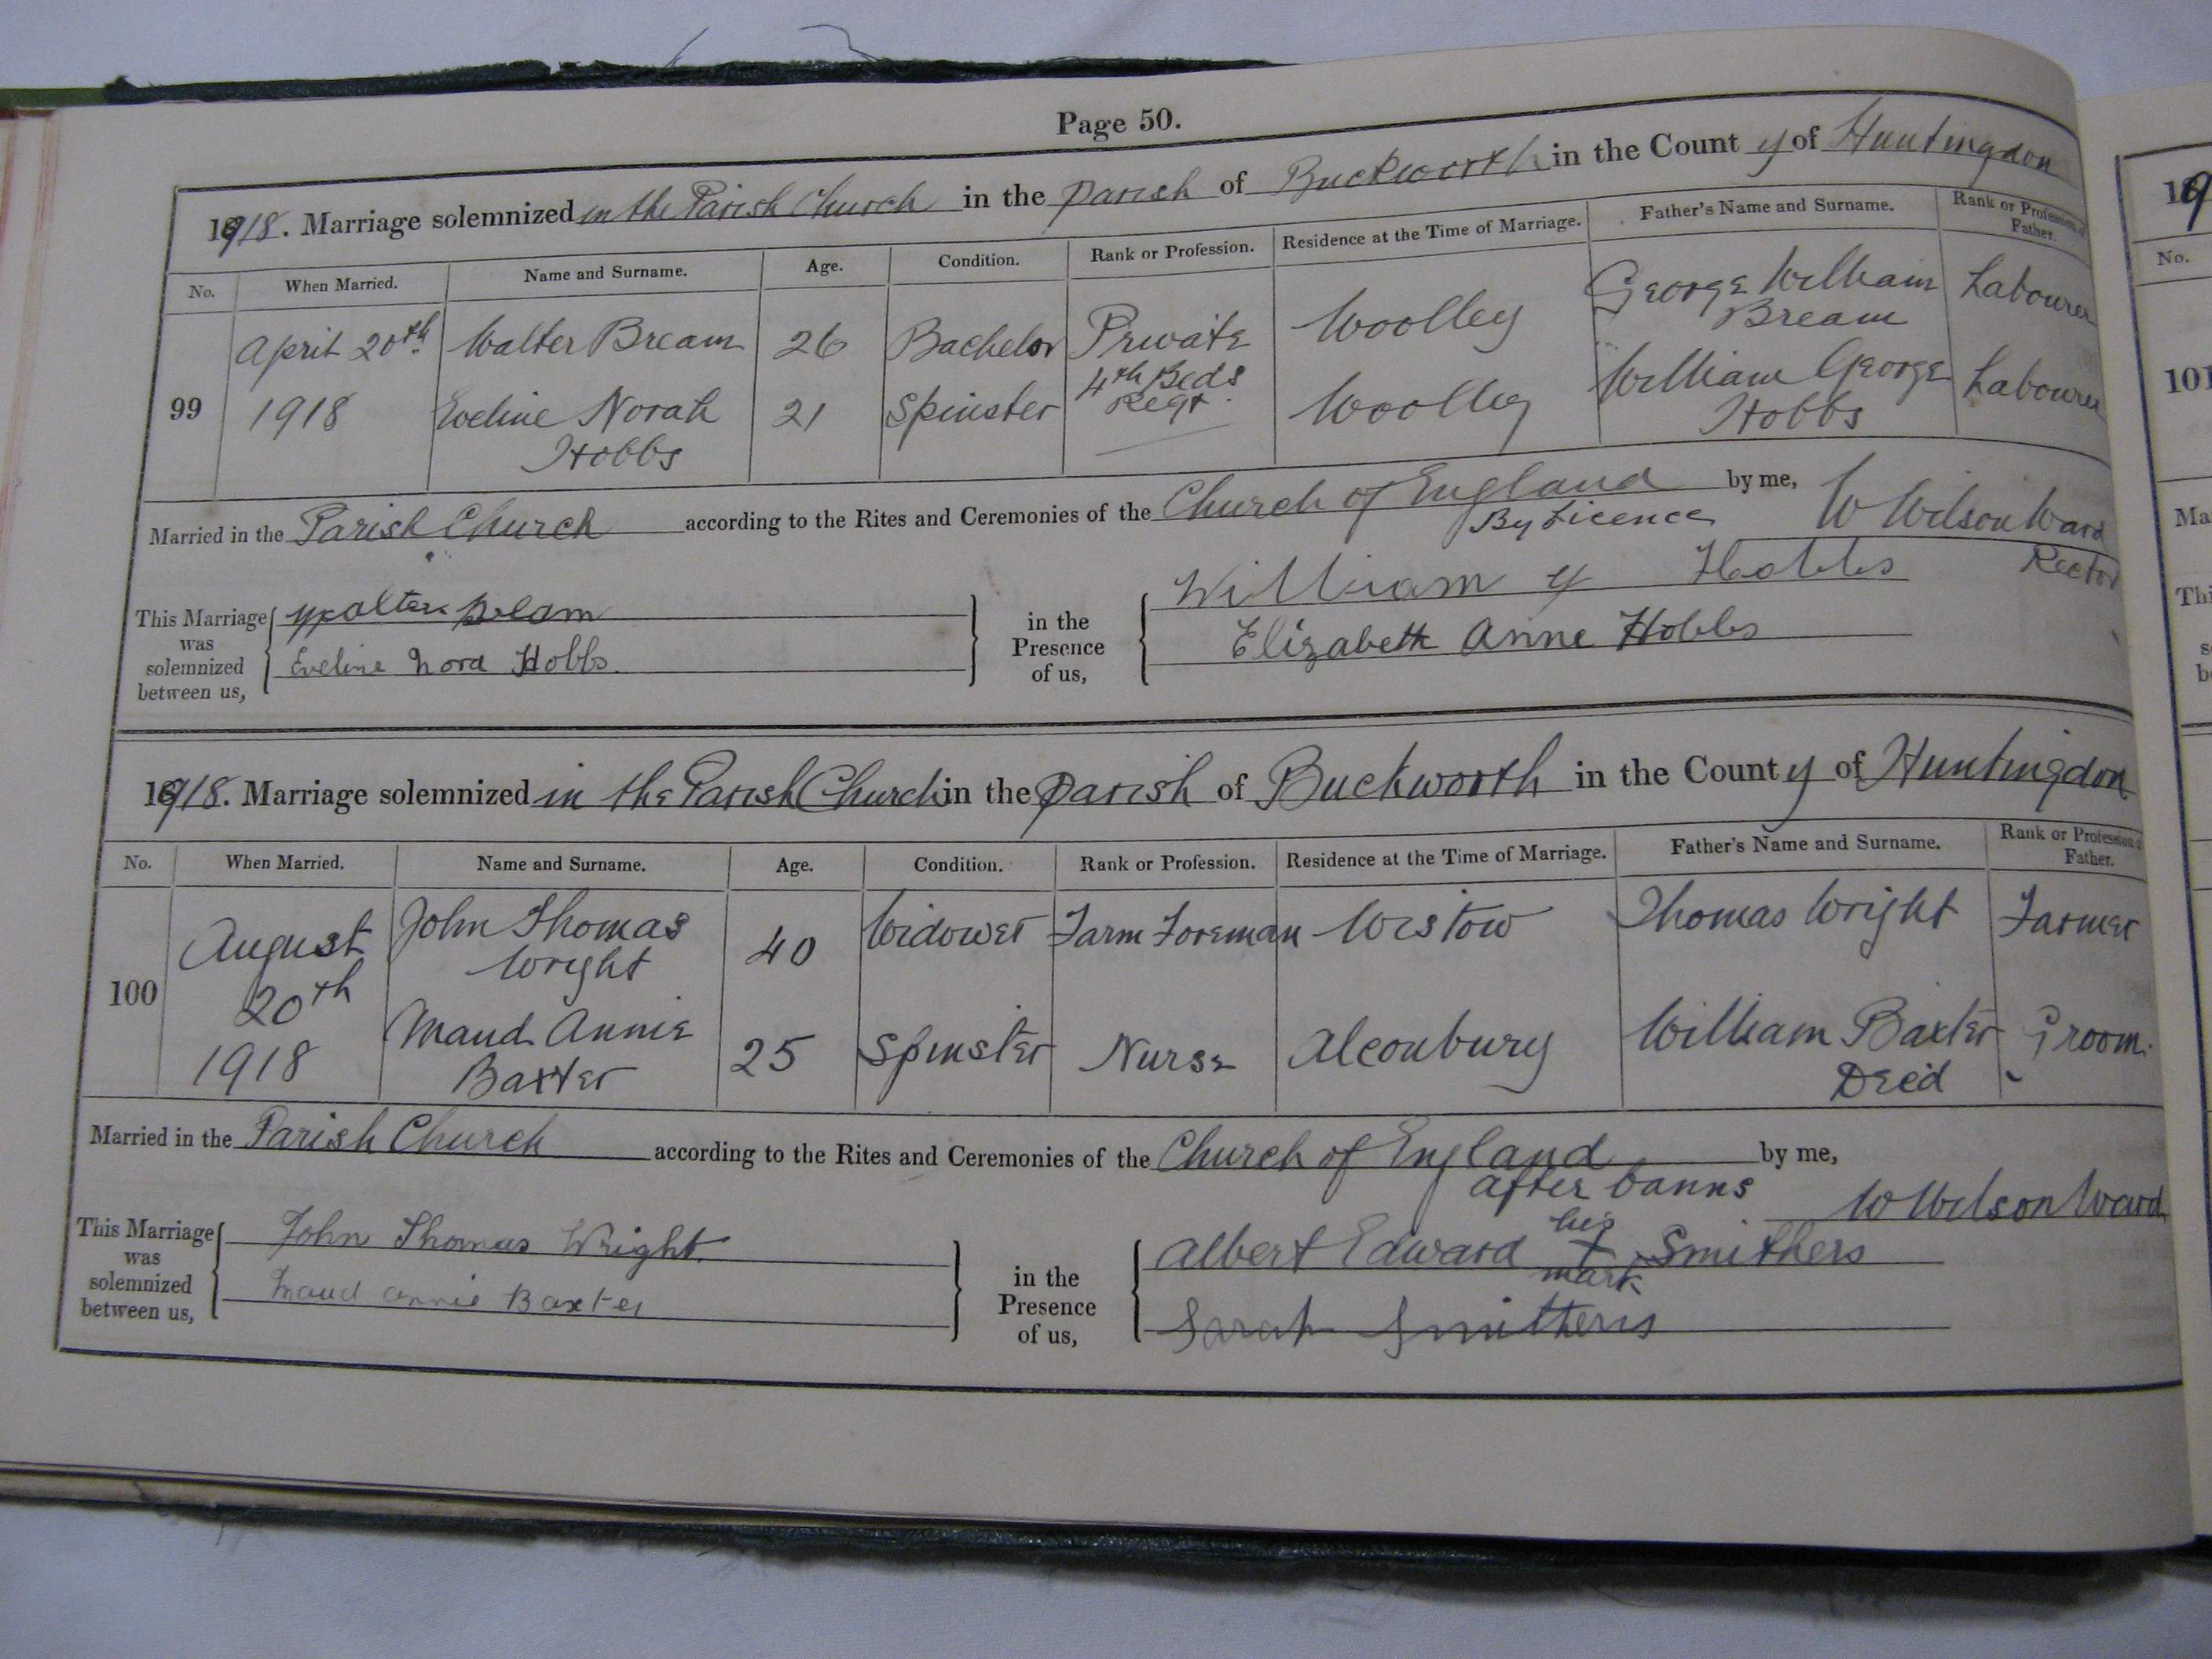 Page 50.
1918. Marriage solemnized in the Parish Church in the Parish of Buckworth in the County of Huntingdon
No. When Married. Name and Surname. Age. Condition. Rank or Profession. Residence at the Time of Marriage. Father's Name and Surname. Rank or Profession of Father.
99
April 20th 1918
Walter Bream 26 Bachelor Private 4th Beds Regt. Woolley George William Bream Labourer
Eveline Norah Hobbs 21 Spinster Woolley William George Hobbs Labourer
Married in the Parish Church according to the Rites and Ceremonies of the Church of England by me,
By Licence W Wilson Ward
Rector
This Marriage was solemnized between us,
Walter Bream
Eveline Nora Hobbs.
in the Presence of us,
William G Hobbs
Elizabeth Anne Hobbs
1918. Marriage solemnized in the Parish Church in the Parish of Buckworth in the County of Huntingdon
No. When Married. Name and Surname. Age. Condition. Rank or Profession. Residence at the Time of Marriage. Father's Name and Surname. Rank or Profession of Father.
100
August 20th 1918
John Thomas Wright 40 Widower Farm Foreman Wistow Thomas Wright Farmer
Maud Annie Baxter 25 Spinster Nurse Alconbury William Baxter Decd Groom.
Married in the Parish Church according to the Rites and Ceremonies of the Church of England by me,
after banns W Wilson Ward
This Marriage was solemnized between us,
John Thomas Wright.
Maud Annie Baxter
in the Presence of us,
Albert Edward his X mark Smithers
Sarah Smithers
19
No.
101